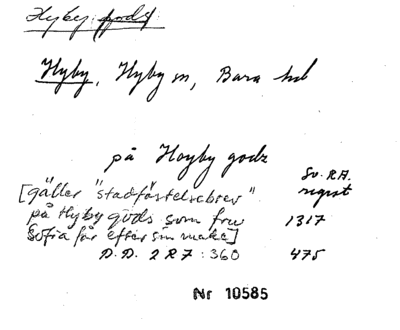 Hyby gods
Hyby, Hyby sn, Bara hd
på Høyby godz
Sv. RA.
[gäller "stadfästelsebrev"
regest
på Hyby gods som fru
1317
Sofia får efter sin make]
D.D. 2 R 7 : 360
475
Nr 10585